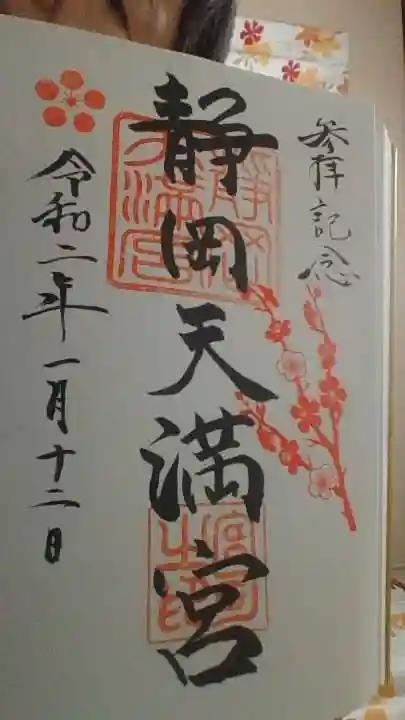 参拝記念
静岡天満宮
令和二年一月十二日